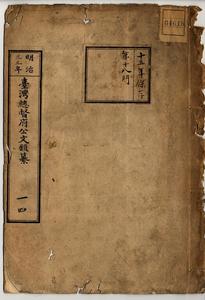 十五年保存
第十八門
明治
三三年
臺灣總督府公文類纂
一四